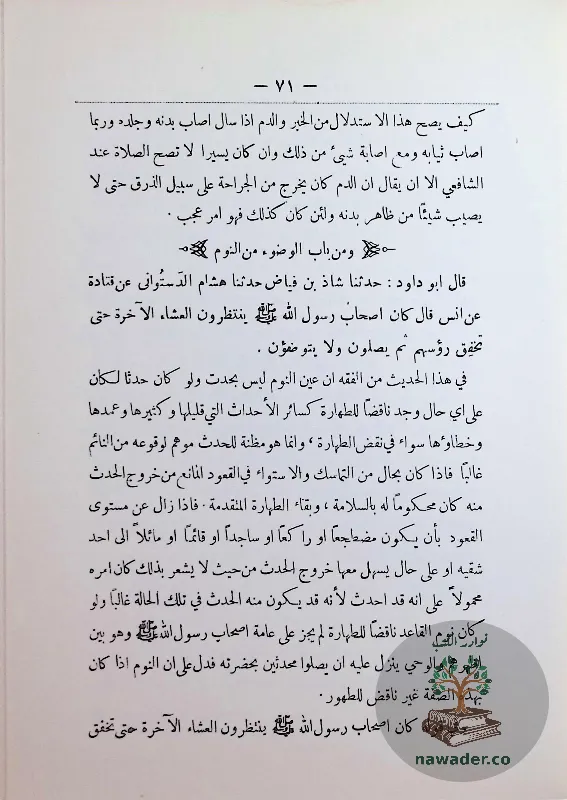 — ٧١ —
كيف يصح هذا الاستدلال من الخبر والدم اذا سال اصاب بدنه وجلده وربما
اصاب ثيابه ومع اصابة شيئ من ذلك وان كان يسيرا لا تصح الصلاة عند
الشافعي الا ان يقال ان الدم كان يخرج من الجراحة على سبيل الذرق حتى لا
يصيب شيئًا من ظاهر بدنه ولئن كان كذلك فهو امر عجب .
ومن باب الوضوء من النوم
قال ابو داود : حدثنا شاذ بن فياض حدثنا هشام الدَستُوانى عن قتادة
عن انس قال كان اصحابُ رسول الله ﷺ ينتظرون العشاء الآخرة حتى
تخفِق رؤسهم ثم يصلون ولا يتوضؤن .
في هذا الحديث من الفقه ان عين النوم ليس بحدث ولو كان حدثًا لكان
على اي حال وجد ناقضًا للطهارة كسائر الأحداث التي قليلها وكثيرها وعمدها
وخطاؤها سواء في نقض الطهارة ، وانما هو مظنة للحدث موهم لوقوعه من النائم
غالبًا فاذا كان بحال من التماسك والاستواء في القعود المانع من خروج الحدث
منه كان محكومًا له بالسلامة ، وبقاء الطهارة المتقدمة . فاذا زال عن مستوى
القعود بأن يكون مضطجعًا او راكعًا او ساجداً او قائمًا او مائلاً الى احد
شقيه او على حال يسهل معها خروج الحدث من حيث لا يشعر بذلك كان امره
محمولاً على انه قد احدث لأنه قد يكون منه الحدث في تلك الحالة غالبًا ولو
كان نوم القاعد ناقضًا للطهارة لم يجز على عامة اصحاب رسول الله ﷺ وهو بين
اظهرهم والوحي ينزل عليه ان يصلوا محدثين بحضرته فدل على ان النوم اذا كان
بهذه الصفة غير ناقض للطهور .
كان اصحاب رسول الله ﷺ ينتظرون العشاء الآخرة حتى تخفق
نوادر الكتب
nawader.co